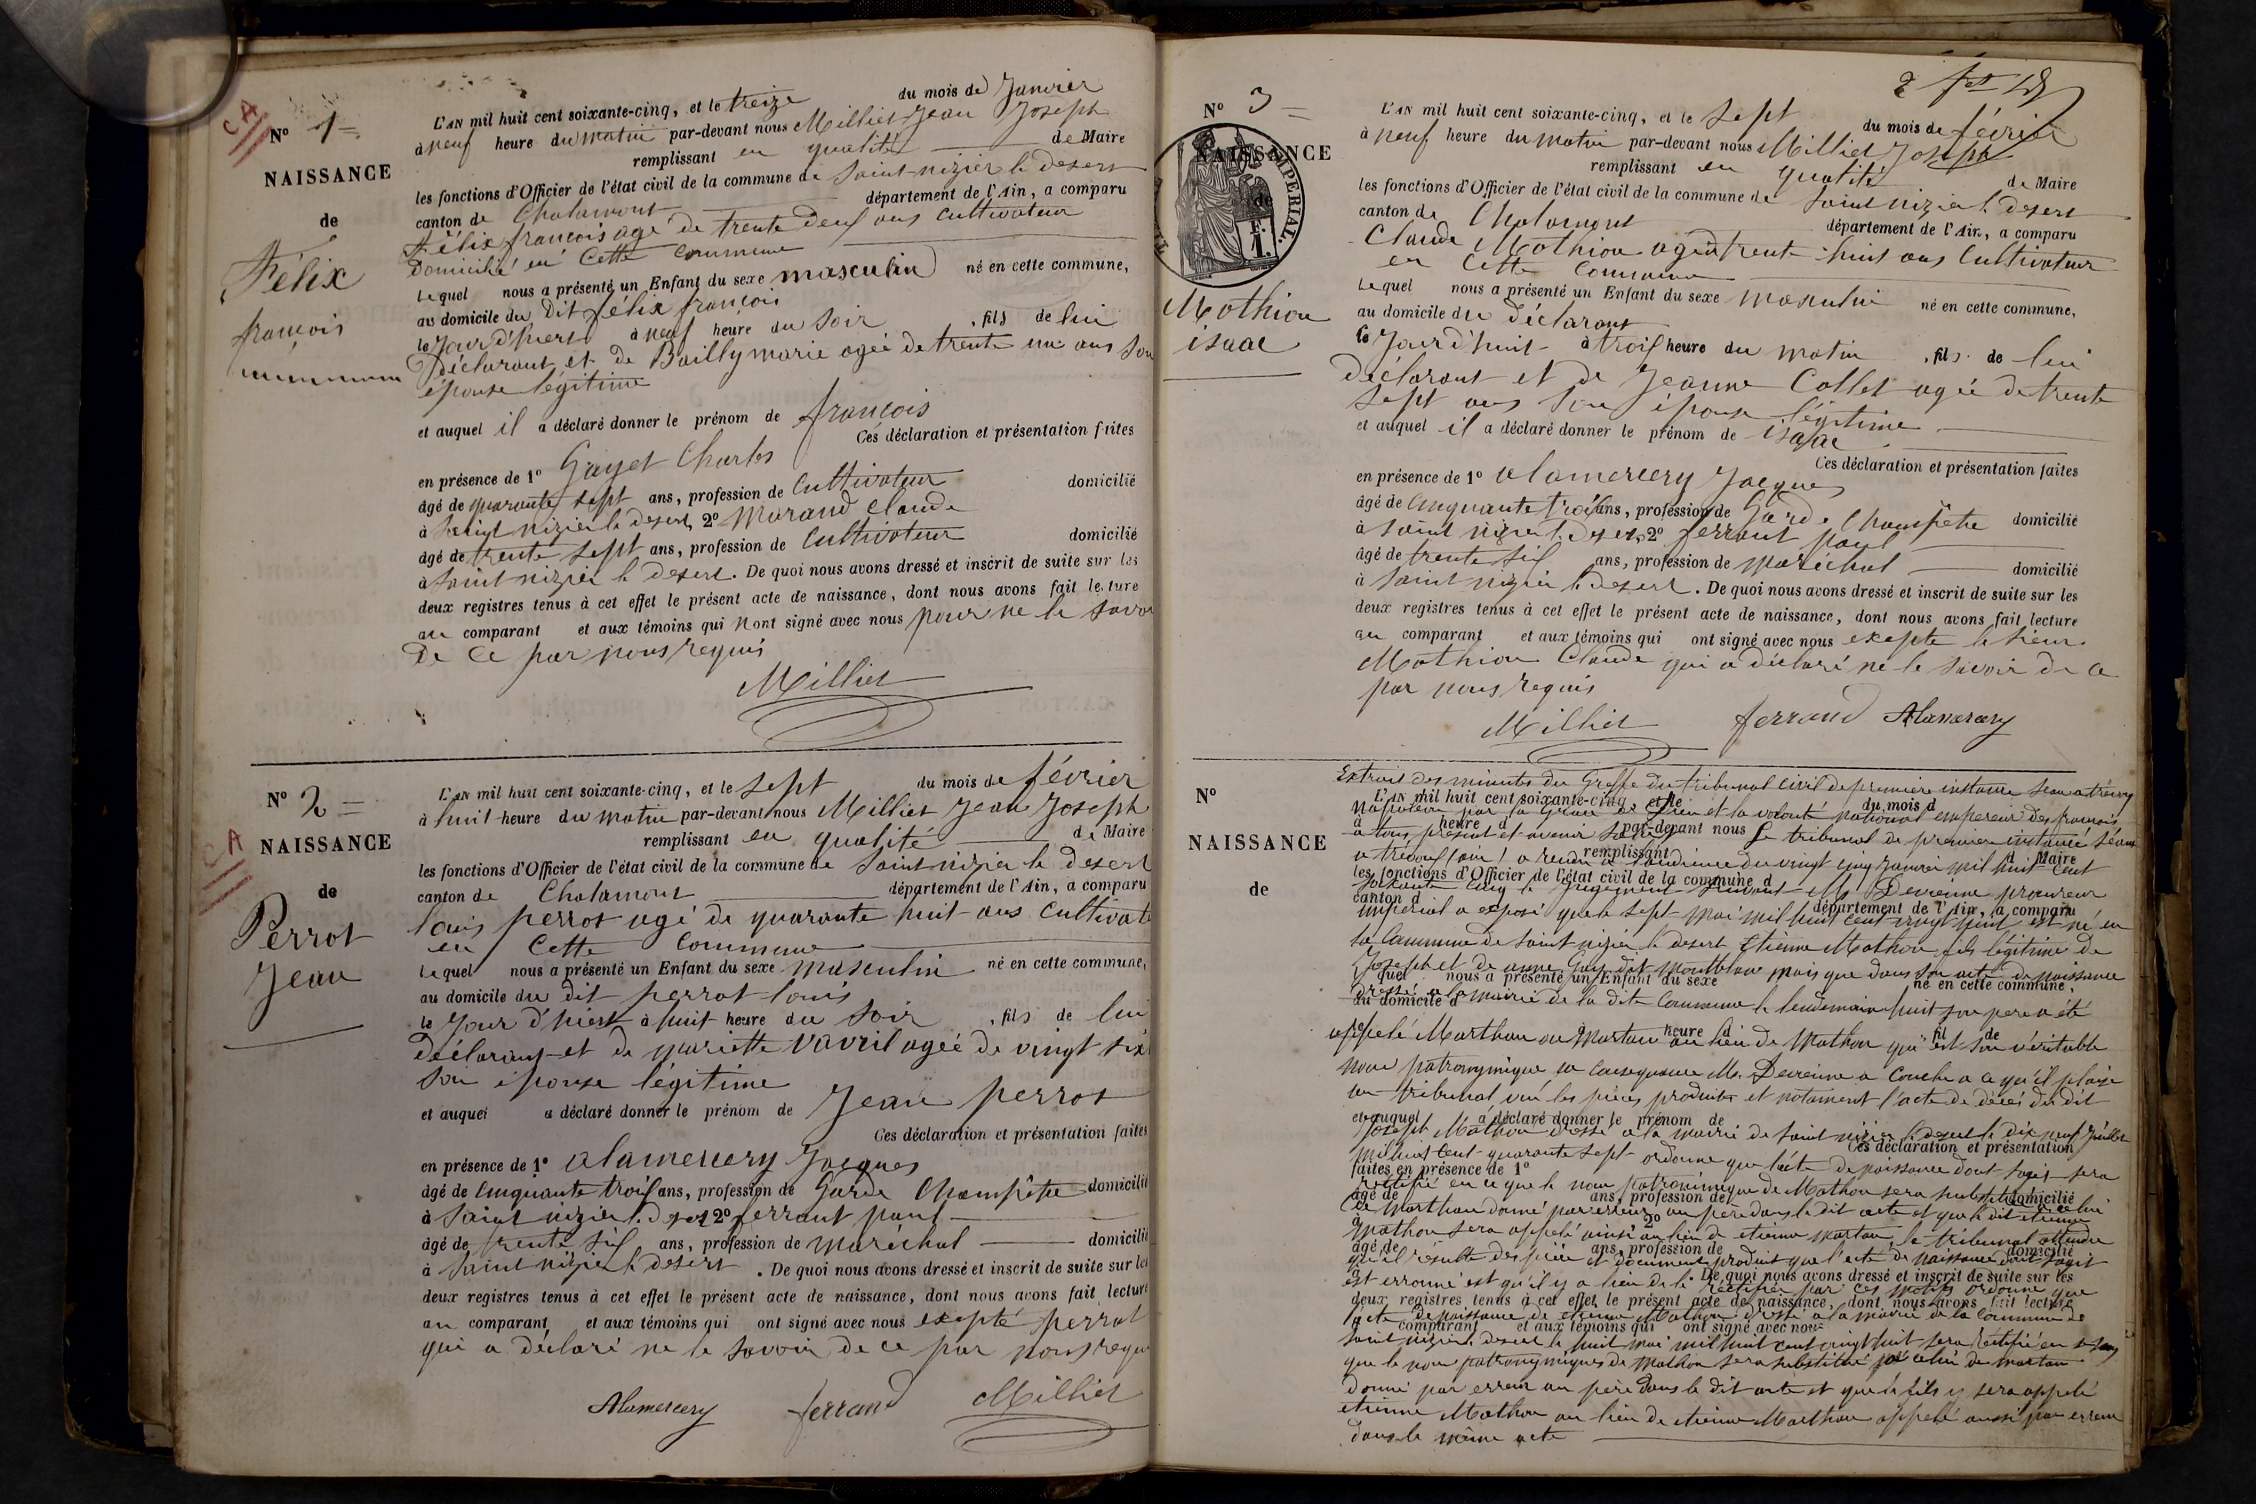 CA
N° 1 =
NAISSANCE
de
Félix
françois
L'AN mil huit cent soixante-cinq, et le treize du mois de Janvier
à neuf heure du matin par-devant nous Milliet Jean Joseph
remplissant en qualité de Maire
les fonctions d'Officier de l'état civil de la commune de Saint nizier le desert
canton de Chalamont département de l'Ain, a comparu
Félix françois agé de trente deux ans cultivateur
domicilié en Cette commune
Lequel nous a présenté un Enfant du sexe masculin né en cette commune,
au domicile du dit félix françois
le Jour d'hier à neuf heure du soir, fils de lui
Déclarant et de Bailly marie agée de trente un ans son
épouse légitime
et auquel il a déclaré donner le prénom de françois
Ces déclaration et présentation faites
en présence de 1° Gayet Charles
âgé de quarante sept ans, profession de Cultivateur domicilié
à Saint nizier le desert, 2° Morand Claude
âgé de trente sept ans, profession de Cultivateur domicilié
à Saint nizier le desert. De quoi nous avons dressé et inscrit de suite sur les
deux registres tenus à cet effet le présent acte de naissance, dont nous avons fait lecture
au comparant et aux témoins qui nont signé avec nous pour ne le savoir
De ce par nous requis
Milliet
CA
N° 2 =
NAISSANCE
de
Perrot
Jean
L'AN mil huit cent soixante-cinq, et le sept du mois de février
à huit heure du matin par-devant nous Milliet Jean Joseph
remplissant en qualité de Maire
les fonctions d'Officier de l'état civil de la commune de Saint nizier le desert
canton de Chalamont département de l'Ain, a comparu
Louis perrot agé de quarante huit ans Cultivat
en Cette Commune
Lequel nous a présenté un Enfant du sexe masculin né en cette commune,
au domicile du dit perrot louis
le Jour d'hier à huit heure du soir, fils de lui
déclarant et de mariette Vavril agée de vingt six
son épouse légitime
et auquel a déclaré donner le prénom de Jean perrot
Ces déclaration et présentation faites
en présence de 1° Alamercery Jacques
âgé de Cinquante trois ans, profession de Garde Champêtre domicilié
à Saint nizier l. desert 2° ferrant paul
âgé de trente six ans, profession de maréchal domicilié
à Saint nizier le desert. De quoi nous avons dressé et inscrit de suite sur les
deux registres tenus à cet effet le présent acte de naissance, dont nous avons fait lecture
au comparant et aux témoins qui ont signé avec nous excepté perrot
qui a déclaré ne le savoir de ce par nous requ
Alamercery ferrand Milliet
N° 3 =
NAISSANCE
de
IMPERIAL.
1 F.
Mathion
isaac
L'AN mil huit cent soixante-cinq, et le Sept du mois de février
à neuf heure du matin par-devant nous Milliet Joseph
remplissant en qualité de Maire
les fonctions d'Officier de l'état civil de la commune de Saint nizier le desert
canton de Chalamont département de l'Ain, a comparu
Claude Mathion agé de trente huit ans Cultivateur
en Cette Commune
Lequel nous a présenté un Enfant du sexe masculin né en cette commune,
au domicile du déclarant
le Jour d'huit à trois heure du matin, fils de lui
Déclarant et de Jeanne Collet agée de trente
Sept ans son épouse légitime
et auquel il a déclaré donner le prénom de isaac
Ces déclaration et présentation faites
en présence de 1° Alamercery Jacques
âgé de Cinquante trois ans, profession de Garde Champêtre domicilié
à Saint nizier l. desert, 2° ferrant paul
âgé de trente six ans, profession de maréchal domicilié
à Saint nizier le desert. De quoi nous avons dressé et inscrit de suite sur les
deux registres tenus à cet effet le présent acte de naissance, dont nous avons fait lecture
au comparant et aux témoins qui ont signé avec nous exepte le sieur
Mathion Claude qui a déclaré ne le savoir de ce
par nous requis
Milliet ferrand Alamercery
N°
NAISSANCE
de
Extrait des minutes du Greffe du tribunal civil de première instance séant a trévoux
L'AN mil huit cent soixante-cinq, et le du mois d
Napoléon par la Grâce de Dieu et la volonté national empereur des français
à heure d par-devant nous
a tous présent et avenir Salut le tribunal de première instance séant
remplissant d Maire
a trévoux (ain) a rendu a l'audience du vingt cinq Janvier mil huit cent
les fonctions d'Officier de l'état civil de la commune d
soixante cinq le Jugement suivant M. Devienne procureur
canton d département de l'Ain, a comparu
impérial a exposé que le sept mai mil huit cent vingt huit est né en
la Commune de Saint nizier le desert Etienne Mathon fils légitime de
Joseph et de anne Guy dit montblanc mais que dans son acte de naissance
quel nous a présenté un Enfant du sexe né en cette commune,
dressé a la mairie de la dite Commune le lendemain huit son pere a été
au domicile d
appelé Marthan ou Martan au lieu de Mathon qui est son véritable
heure d fil de
nom patronymique en Conséquence M. Devienne a Conclu a ce qu'il plaise
au tribunal vu les pièces produites et notament l'acte de décès du dit
et auquel a déclaré donner le prénom de
Joseph Mathon dressé a la mairie de Saint nizier le desert le dix neuf Juillet
Ces déclaration et présentation
mil huit Cent quarante sept ordonne que l'acte de naissance dont sagit sera
faites en présence de 1°
rectifié en ce que le nom patronimique de Mathon sera substitué a celui
âgé de ans, profession de domicilié
de Marthan donné par erreur au père dans le dit acte et que le dit etienne
à 2°
Mathon sera appelé ainsi au lieu de etienne martan, le tribunal attendu
âgé de ans, profession de domicilié
qu'il résulte des pièces et document produit que l'acte de naissance dont sagit
est erronné et qu'il y a lieu de le rectifier par Ces motifs ordonne que
De quoi nous avons dressé et inscrit de suite sur les
deux registres tenus à cet effet le présent acte de naissance, dont nous avons fait lecture
l'acte de naissance de etienne Mathon dressé a la mairie de la Commune de
comparant et aux témoins qui ont signé avec nous
Saint nizier le desert le huit mai mil huit cent vingt huit sera rectifié en ce sens
que le nom patronymiques de Mathon sera substitué a celui de martan
donné par erreur au père dans le dit acte et que le fils y sera appelé
etienne Mathon au lieu de etienne Marthan appelé aussi par erreur
dans le même acte